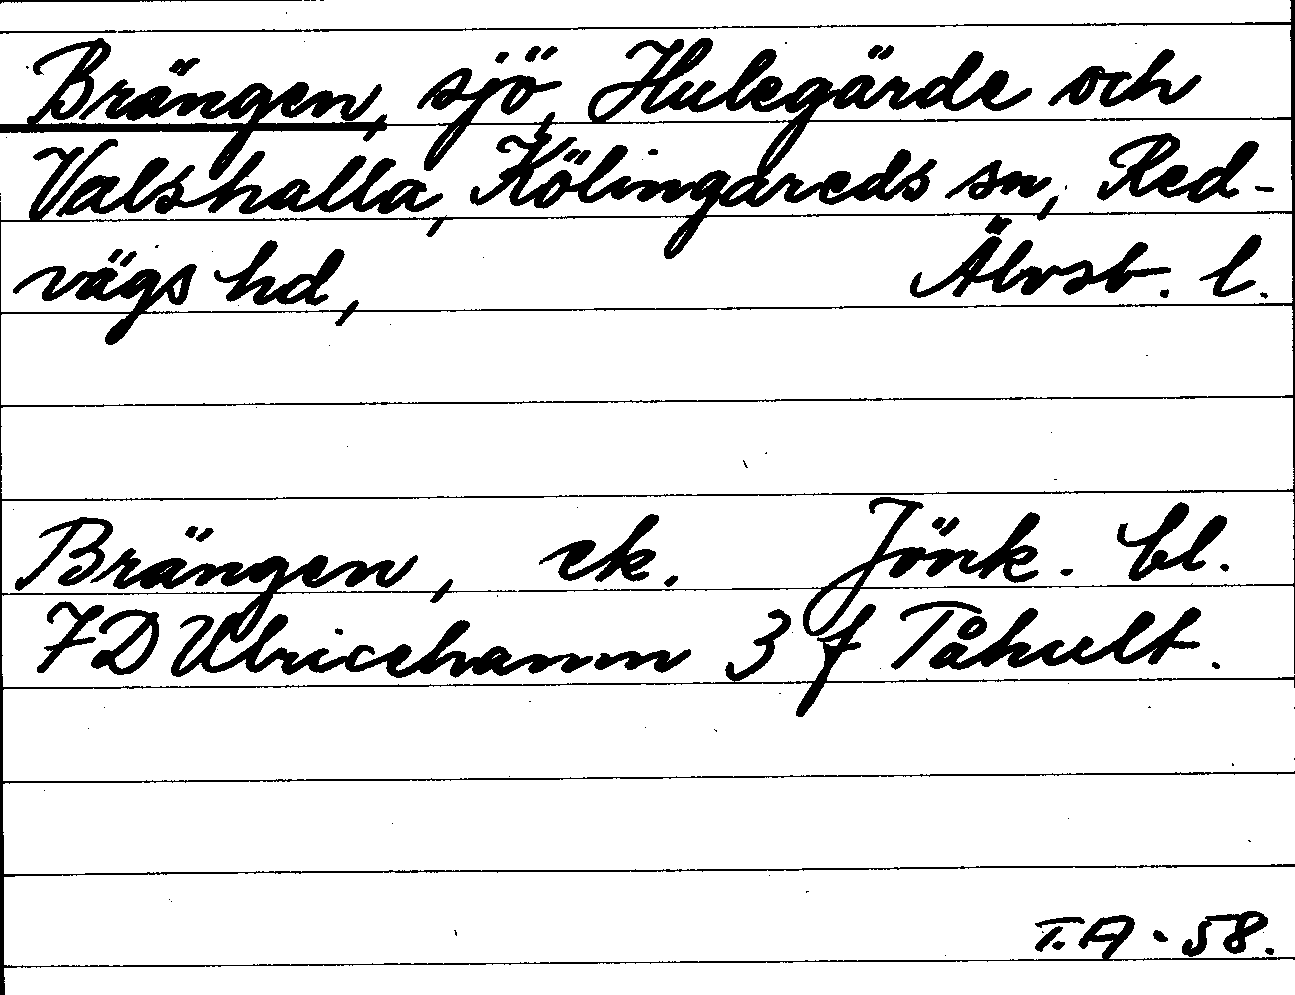 Brängen, sjö, Hulegärde och
Valshalla, Kölingareds sn, Red-
vägs hd, Älvsb. l.
Brängen, ek. Jönk. bl.
7D Ulricehamn 3 f Tåhult.
T.A - 58.